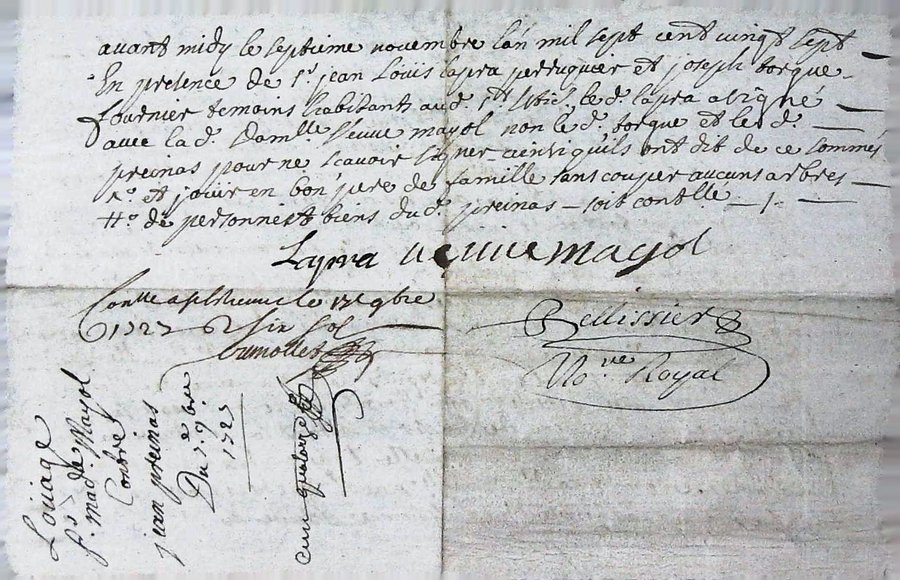 avant midy le septieme novembre l'an mil sept cent vingt sept
En presence de Sr. jean Louis Lapra perruquier et joseph torque
fournier temoins habitants aud. le d. Lapra a signé
avec la d. Damlle. veuve mayol non le d. torque et le d.
preinas pour ne scavoir signer ainsi quils ont dit de ce sommés
Ro. et jouir en bon pere de famille sans couper aucuns arbres
tto. de personne et biens du d. preinas soit contllé
Lapra veuve mayol
le 9bre
1727 six sol
Pellissier
No.re Royal
Louage
pr. mad. de Mayol
Contre
jean preinas
Du 7e. 9bre
1727